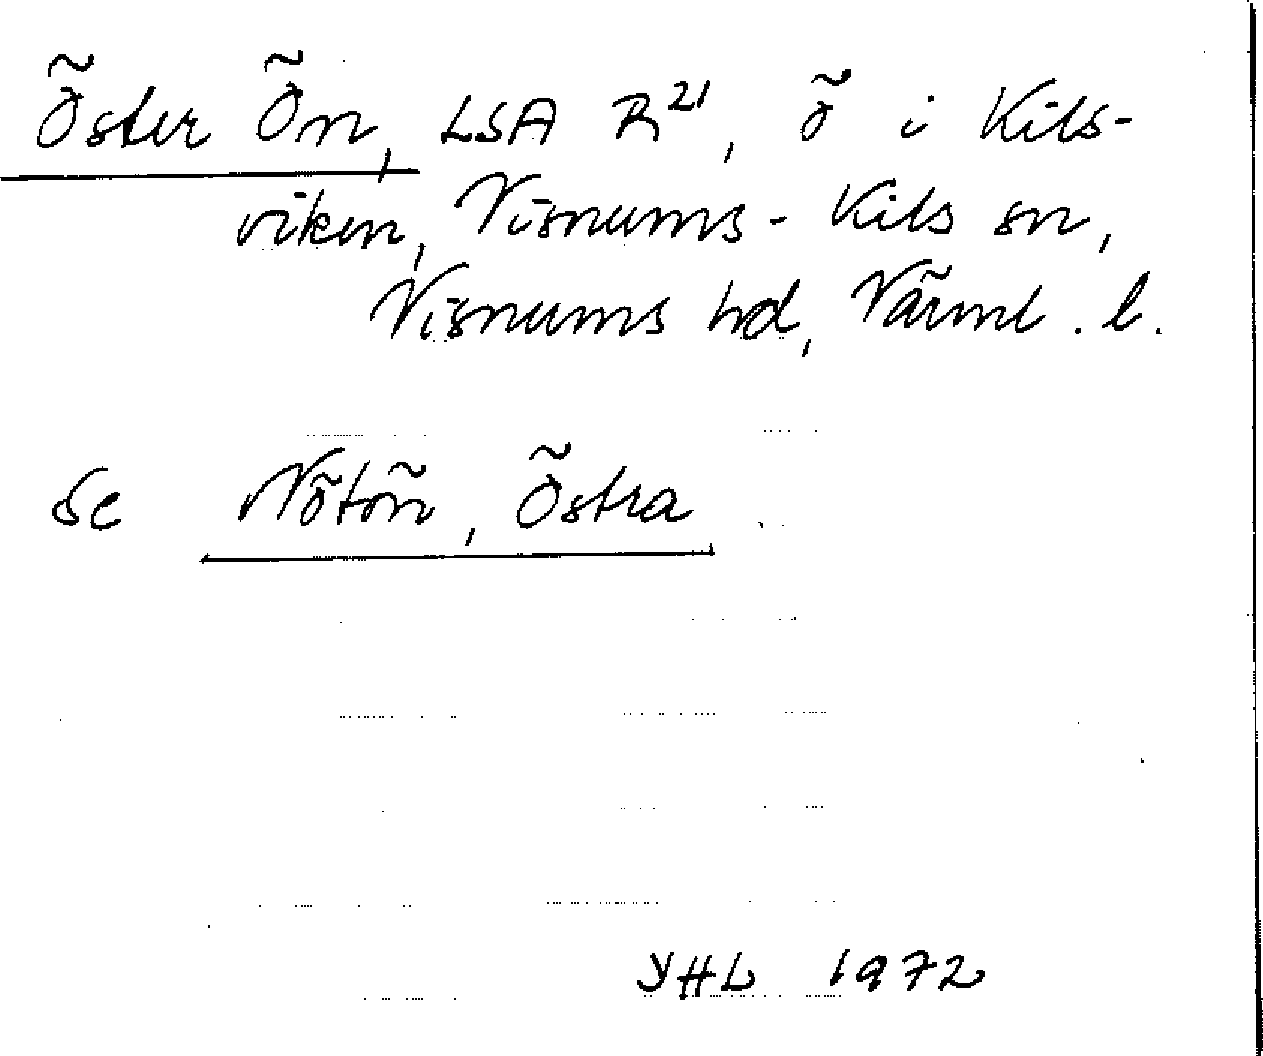 Öster Ön, LSA R21, ö i Kils-
viken, Visnums-Kils sn,
Visnums hd, Värml. l.
Se Nötön, Östra.
YHL 1972